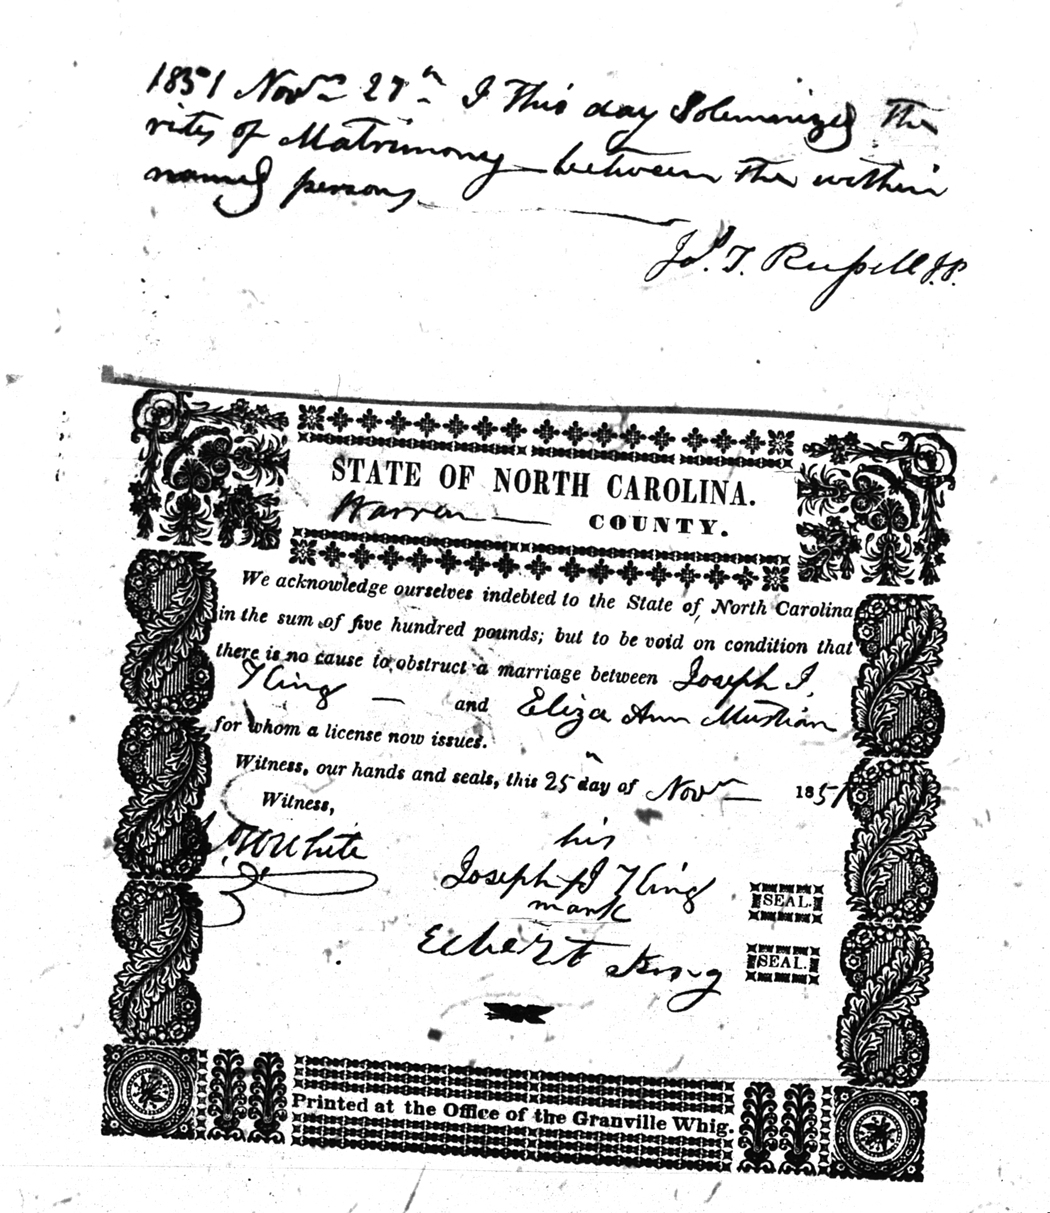 1851 Novr 27th I This day Solemnized The
rites of Matrimony between the within
named persons
Jos. T. Russell J.P.
STATE OF NORTH CAROLINA.
Warren COUNTY.
We acknowledge ourselves indebted to the State of North Carolina
in the sum of five hundred pounds; but to be void on condition that
there is no cause to obstruct a marriage between Joseph J.
King — and Eliza Ann Mustian
for whom a license now issues.
Witness, our hands and seals, this 25th day of Novr 1851
Witness,
White
his
Joseph J King SEAL.
mark
Egbert King SEAL.
Printed at the Office of the Granville Whig.